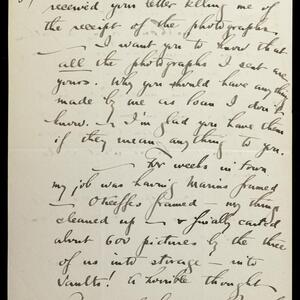 received your letter telling me of
the receipt of the photographs.
— I want you to know that
all the photographs I sent are
yours. Why you should have anything
made by me as loan I don't
know. — I'm glad you have them
if they mean anything to you.
— For weeks in town
my job was having Marins framed
— O'Keeffes framed — my things
cleaned up — & finally carted
about 600 pictures by the three
of us into storage — into
Vaults! A horrible thought